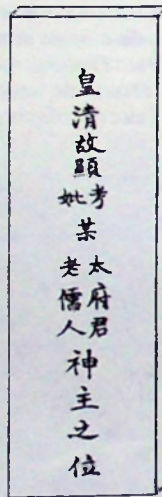 皇清故顯考妣某太府君老儒人神主之位